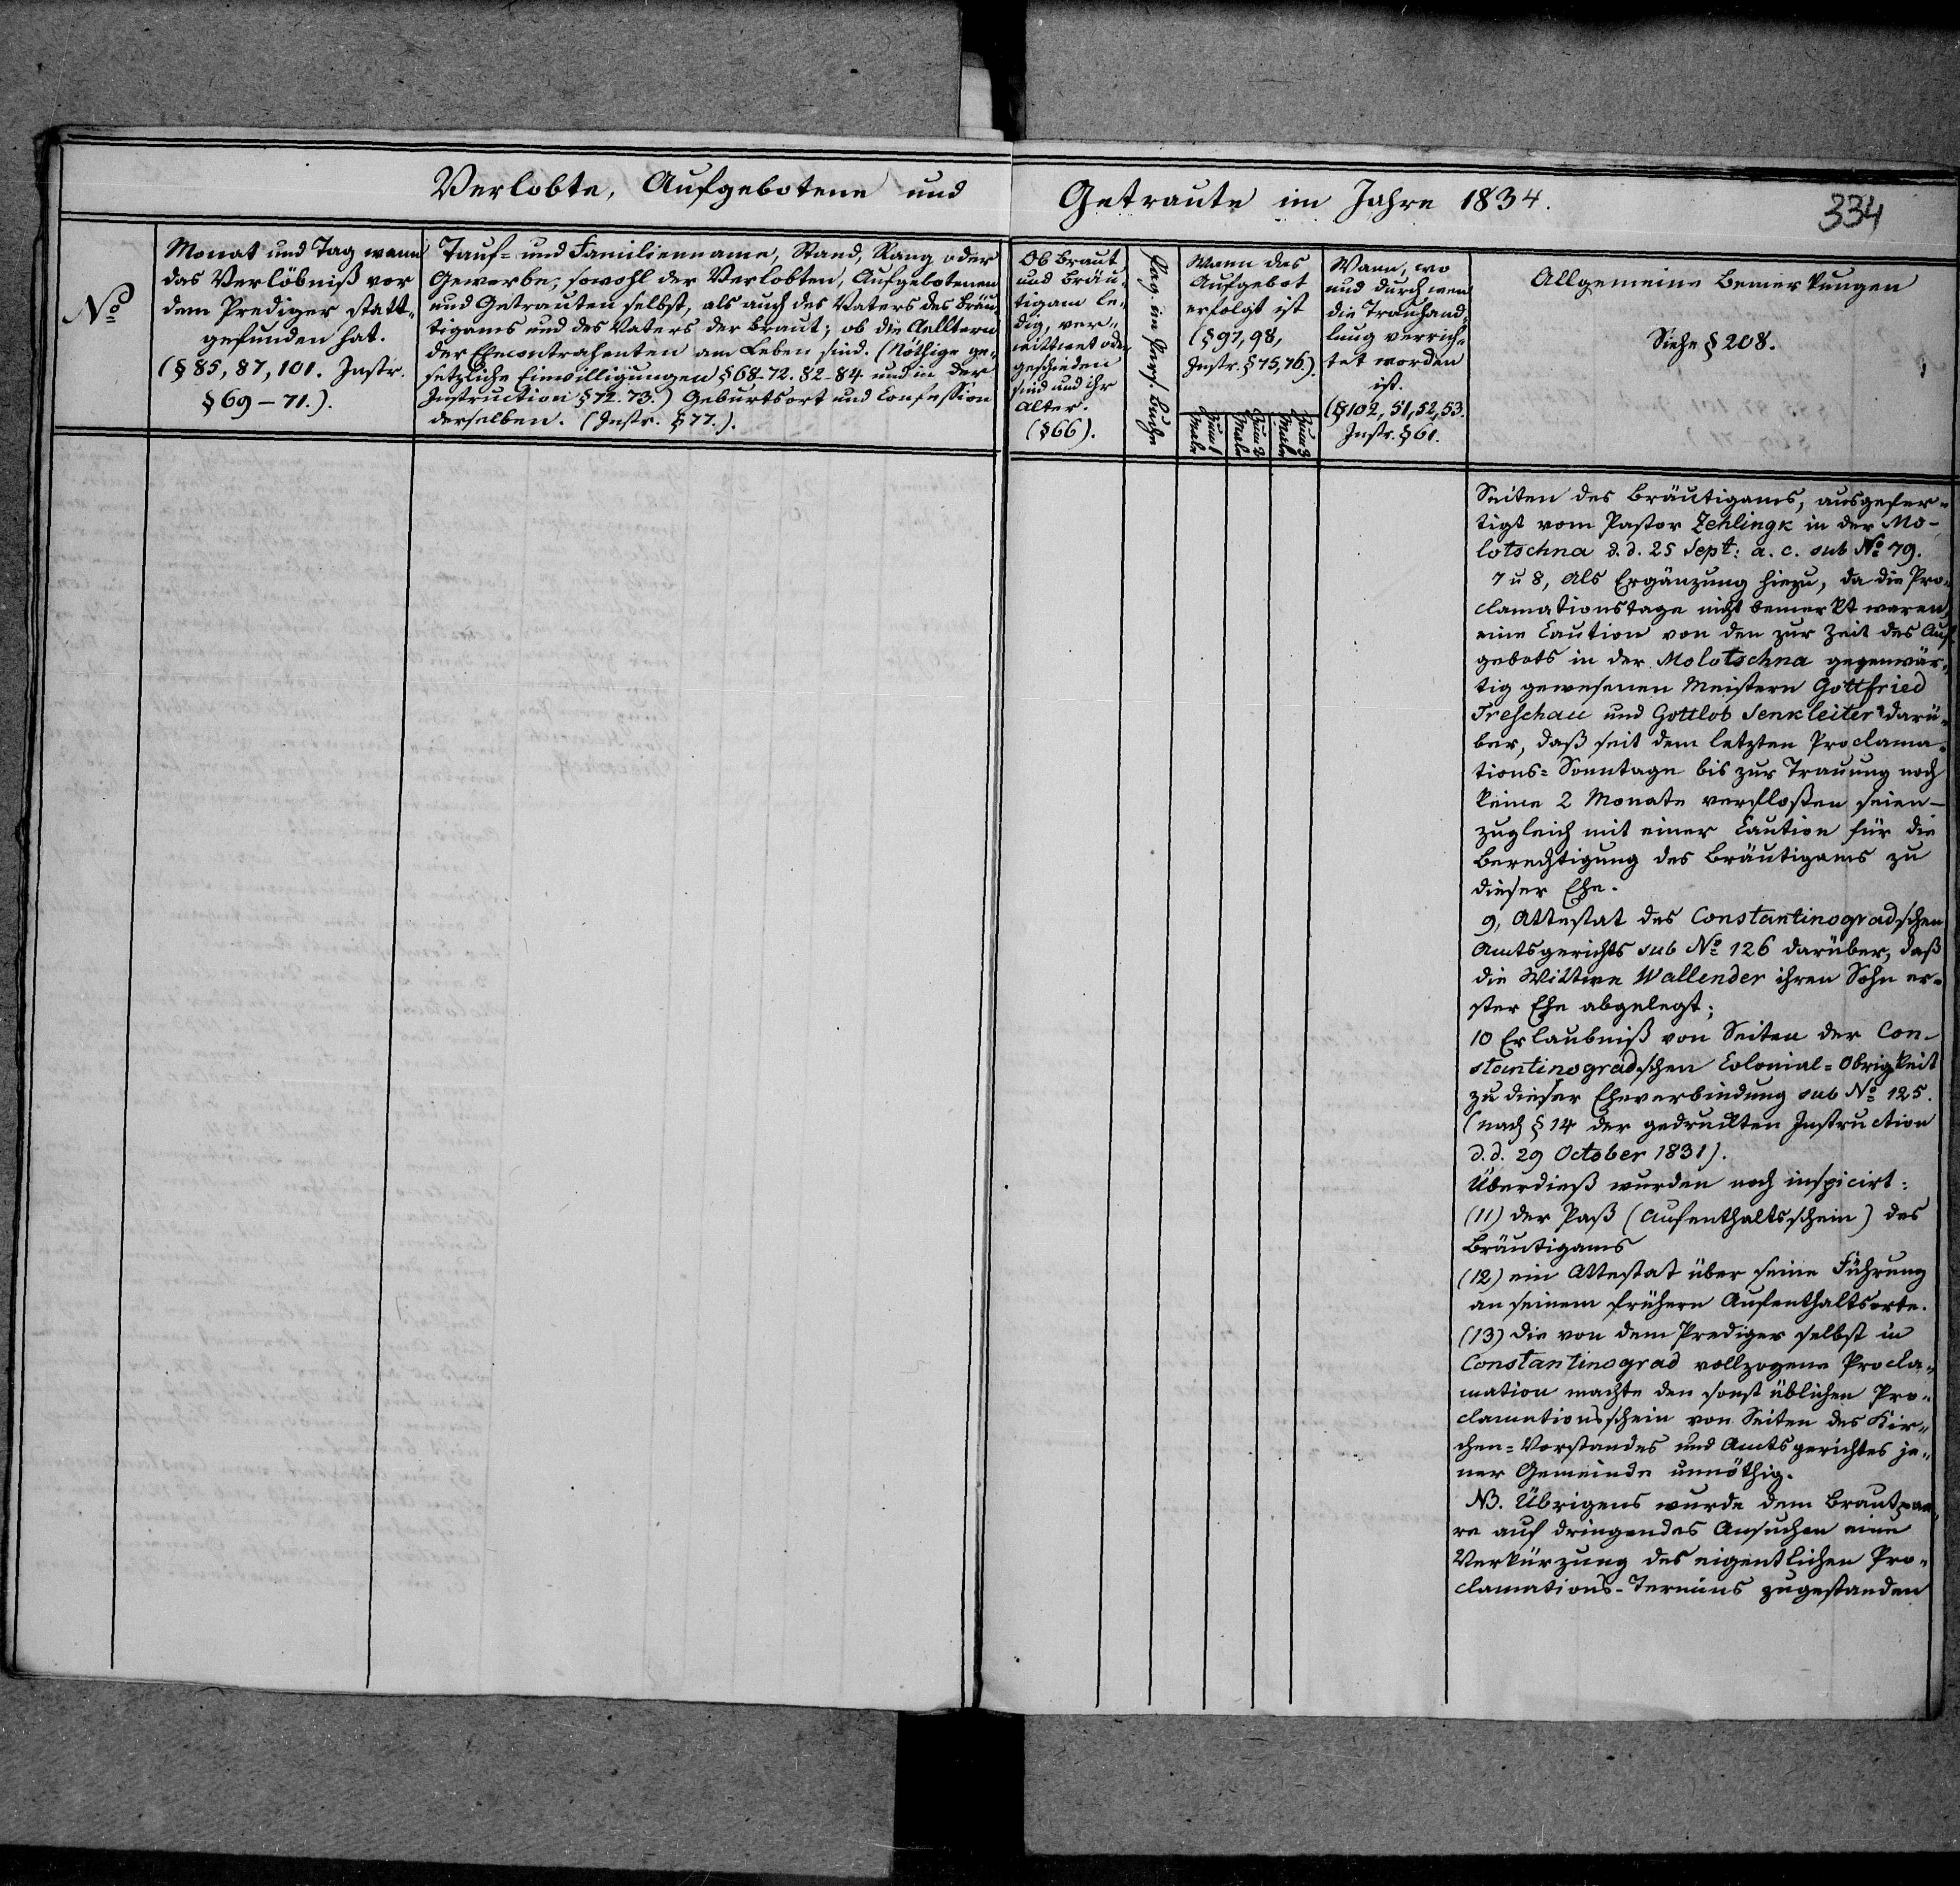 Verlobte, Aufgebotene und
Getraute im Jahre 1834.
334
No
Monat und Tag wann
das Verlöbniß vor
dem Prediger statt-
gefunden hat.
(§ 85, 87, 101. Instr.
§ 69 – 71.).
Tauf= und Familienname, Stand, Rang oder
Gewerbe, sowohl der Verlobten, Aufgebotenen
und Getrauten selbst, als auch des Vaters des Bräu-
tigams und des Vaters der Braut; ob die Aelltern
der Ehecontrahenten am Leben sind. (Nöthige ge-
setzliche Einwilligungen § 68-72. 82-84 und in der
Instruction § 72. 73.) Geburtsort und Confession
derselben. (Instr. § 77.).
Ob Braut
und Bräu-
tigam le-
dig, ver-
wittwet oder
geschieden
sind und ihr
Alter.
(§ 66).
Pag. im Pers. Buche
Wann das
Aufgebot
erfolgt ist
(§ 97, 98,
Instr. § 75, 76.).
Zum 1 Male
Zum 2 Male
Zum 3 Male
Wann, wo
und durch wen
die Trauhand-
lung verrich-
tet worden
ist.
(§ 102, 51, 52, 53.
Instr. § 61.
Allgemeine Bemerkungen
Siehe § 208.
Seiten des Bräutigams, ausgefer-
tigt vom Pastor Zehlingk in der Mo-
lotschna d. d. 25 Sept: a. c. sub No 79.
7 u 8, Als Ergänzung hiezu, da die Pro-
clamationstage nicht bemerkt waren,
eine Caution von den zur Zeit des Auf-
gebots in der Molotschna gegenwär-
tig gewesenen Meistern Gottfried
Treschau und Gottlob Senkleiter darü-
ber, daß seit dem letzten Proclama-
tions=Sonntage bis zur Trauung noch
keine 2 Monate verfloßen seien –
zugleich mit einer Caution für die
Berechtigung des Bräutigams zu
dieser Ehe.
9, Attestat des Constantinogradschen
Amtsgerichts sub No 126 darüber, daß
die Wittwe Wallender ihren Sohn er-
ster Ehe abgelegt;
10 Erlaubniß von Seiten der Con-
stantinogradschen Colonial=Obrigkeit
zu dieser Eheverbindung sub No 125.
(nach § 14 der gedruckten Instruction
d. d. 29 October 1831).
Überdieß wurden noch inspicirt:
(11) der Paß (Aufenthaltsschein) des
Bräutigams
(12) ein Attestat über seine Führung
an seinem frühern Aufenthaltsorte.
(13) die von dem Prediger selbst in
Constantinograd vollzogene Procla-
mation machte den sonst üblichen Pro-
clamationsschein von Seiten des Kir-
chen=Vorstandes und Amtsgerichtes je-
ner Gemeinde unnöthig.
NB. Übrigens wurde dem Brautpaa-
re auf dringendes Ansuchen eine
Verkürzung des eigentlichen Pro-
clamations-Termins zugestanden